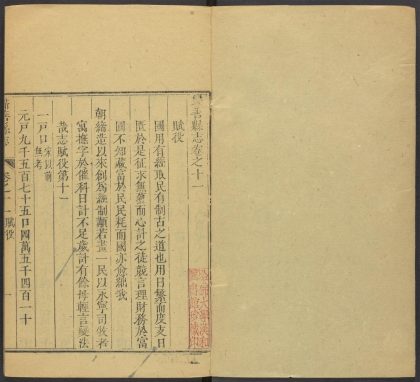 善縣志卷之十一
賦役
國用有經取民有制古之道也用日繁而度支日
匱於是征求無藝而心計之徒競言理財務於富
國不知藏富於民民耗而國亦愈絀我
朝締造以來創爲經制顯若畫一民以永寧司牧者
寓撫字於催科日計不足歲計有餘毋輕言變法
哉志賦役第十一
一戶口 宋以前無考
元戶九千五百七十五口四萬五千四百一十
善縣志 卷之十一 賦役 一